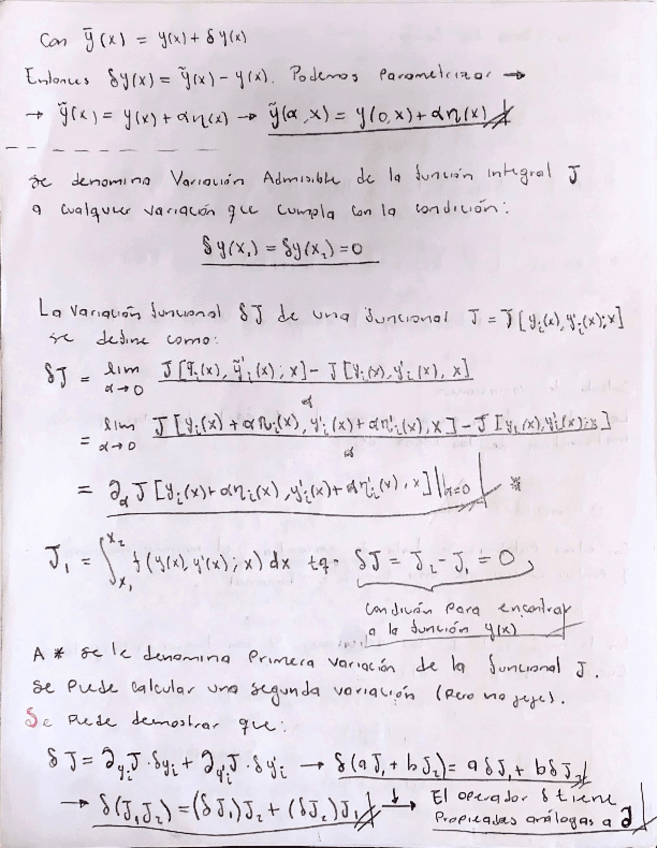 Con ȳ(x) = y(x) + δy(x)
Entonces δy(x) = ỹ(x) - y(x). Podemos parametrizar →
→ ỹ(x) = y(x) + αη(x) → ỹ(α,x) = y(0,x) + αη(x)
Se denomina Variación Admisible de la función integral J
a cualquier variación que cumpla con la condición:
δy(x₁) = δy(x₂) = 0
La variación funcional δJ de una funcional J = J[yᵢ(x), y'ᵢ(x); x]
se define como:
δJ = lim α→0 J[ỹᵢ(x), ỹ'ᵢ(x); x] - J[yᵢ(x), y'ᵢ(x), x] / α
= lim α→0 J[yᵢ(x) + αηᵢ(x), y'ᵢ(x) + αη'ᵢ(x), x] - J[yᵢ(x), y'ᵢ(x); x] / α
= ∂α J[yᵢ(x) + αηᵢ(x), y'ᵢ(x) + αη'ᵢ(x), x]|α=0 *
J₁ = ∫ₓ₁ˣ² f(y(x), y'(x); x) dx tq. δJ = J₂ - J₁ = 0
Condición para encontrar
a la función y(x)
A * se le denomina Primera Variación de la funcional J.
Se puede calcular una segunda variación (pero no jeje).
Se puede demostrar que:
δJ = ∂yᵢJ·δyᵢ + ∂y'ᵢJ·δy'ᵢ → δ(aJ₁ + bJ₂) = aδJ₁ + bδJ₂
→ δ(J₁J₂) = (δJ₁)J₂ + (δJ₂)J₁ ↓→ El operador δ tiene
Propiedades análogas a ∂